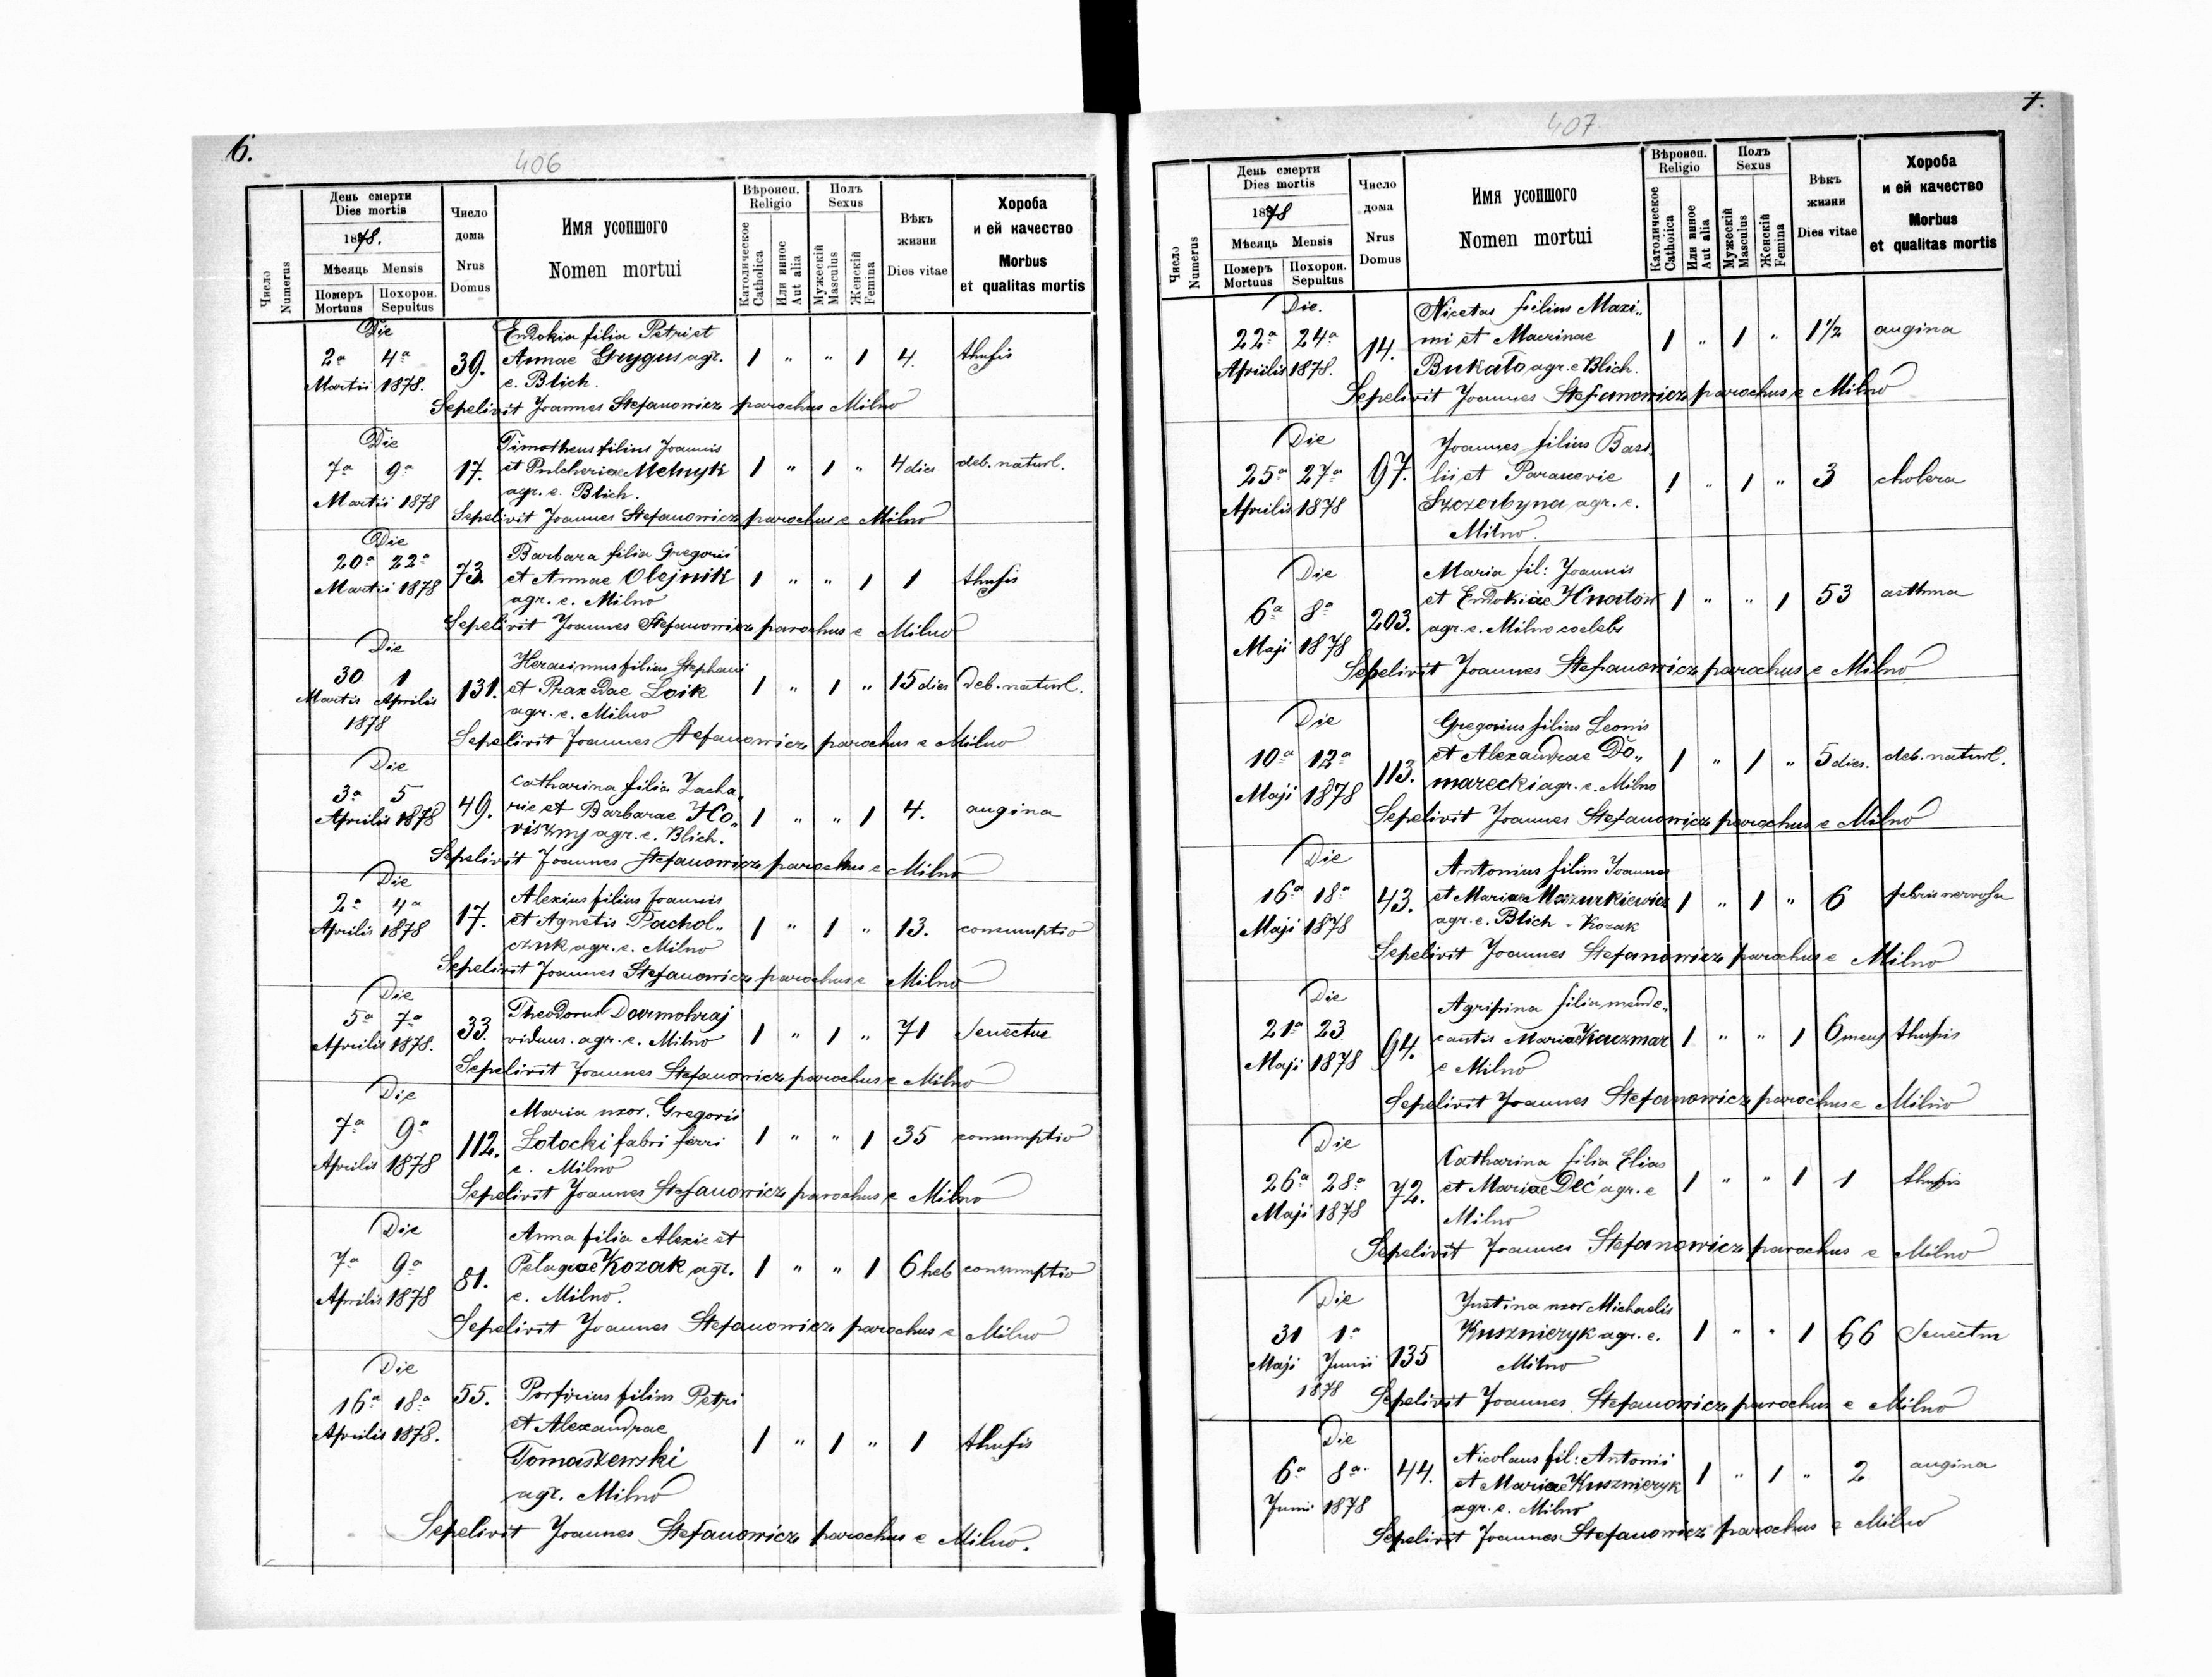 6.
406
Число
Numerus
День смерти
Dies mortis
1878.
Мѣсяць Mensis
Померъ Похорон.
Mortuus Sepultus
Число
дома
Nrus
Domus
Имя усопшого
Nomen mortui
Вѣроисп.
Religio
Католическое
Catholica
Или инное
Aut alia
Полъ
Sexus
Мужескій
Masculus
Женскій
Femina
Вѣкъ
жизни
Dies vitae
Хороба
и ей качество
Morbus
et qualitas mortis
Die
2a 4a
Martii 1878.
39.
Eudokia filia Petri et
Annae Grygus agr.
e. Blich.
1 " " 1 4. thusis
Sepelivit Joannes Stefanowicz parochus Milno
Die
7a 9a
Martii 1878
17.
Timotheus filius Joannis
et Pulcheriae Melnyk
agr. e. Blich.
1 " 1 " 4 dies deb. naturl.
Sepelivit Joannes Stefanowicz parochus e Milno
Die
20a 22a
Martii 1878
73.
Barbara filia Gregorii
et Annae Olejnik
agr. e. Milno
1 " " 1 1 thusis
Sepelivit Joannes Stefanowicz parochus e Milno
Die
30 1
Martis Aprilis
1878
131.
Herasimus filius Stephani
et Praxedae Loik
agr. e. Milno
1 " 1 " 15 dies deb. naturl.
Sepelivit Joannes Stefanowicz parochus e Milno
Die
3a 5
Aprilis 1878
49.
Catharina filia Zacha„
rie et Barbarae Ho„
viszny agr. e. Blich.
1 " " 1 4. angina
Sepelivit Joannes Stefanowicz parochus e Milno
Die
2a 4a
Aprilis 1878
17.
Alexius filius Joannis
et Agnetis Pachol„
czuk agr. e. Milno
1 " 1 " 13. consumptio
Sepelivit Joannes Stefanowicz parochus e Milno
Die
5a 7a
Aprilis 1878.
33.
Theodorus Dormohraj
viduus. agr. e. Milno
1 " 1 " 71 Senectus
Sepelivit Joannes Stefanowicz parochus e Milno
Die
7a 9a
Aprilis 1878
112.
Maria uxor. Gregorii
Lotocki fabri ferri
e. Milno
1 " " 1 35 consumptio
Sepelivit Joannes Stefanowicz parochus e Milno
Die
7a 9a
Aprilis 1878
81.
Anna filia Alexie et
Pelagiae Kozak agr.
e. Milno.
1 " " 1 6 heb consumptio
Sepelivit Joannes Stefanowicz parochus e Milno
Die
16a 18a
Aprilis 1878.
55.
Porfirius filius Petri
et Alexandrae
Tomaszewski
agr. Milno
1 " 1 " 1 thusis
Sepelivit Joannes Stefanowicz parochus e Milno.
7.
407
Число
Numerus
День смерти
Dies mortis
1878
Мѣсяць Mensis
Померъ Похорон.
Mortuus Sepultus
Число
дома
Nrus
Domus
Имя усопшого
Nomen mortui
Вѣроисп.
Religio
Католическое
Catholica
Или инное
Aut alia
Полъ
Sexus
Мужескій
Masculus
Женскій
Femina
Вѣкъ
жизни
Dies vitae
Хороба
и ей качество
Morbus
et qualitas mortis
Die.
22a 24a
Aprilis 1878.
14.
Nicetas filius Maxi„
mi et Macrinae
Bukato agr. e Blich.
1 " 1 " 1 1/2 angina
Sepelivit Joannes Stefanowicz parochus e Milno
Die
25a 27a
Aprilis 1878
97.
Joannes filius Basi„
lii et Paranevie
Szczerbyna agr. e.
Milno.
1 " 1 " 3 cholera
Die
6a 8a
Maji 1878
203.
Maria fil: Joannis
et Eudokiae Hnatow
agr. e. Milno coelebs
1 " " 1 53 asthma
Sepelivit Joannes Stefanowicz parochus e Milno
Die
10a 12a
Maji 1878
113.
Gregorius filius Leonis
et Alexandrae Do„
marecki agr. e. Milno
1 " 1 " 5 dies. deb. naturl.
Sepelivit Joannes Stefanowicz parochus e Milno
Die
16a 18a
Maji 1878
43.
Antonius filius Joannes
et Mariae Mazurkiewicz
agr. e. Blich - Kozak
1 " 1 " 6 febris nervosa
Sepelivit Joannes Stefanowicz parochus e Milno
Die
21a 23
Maji 1878
94.
Agripina filia mende„
cantis Mariae Kaczmar
e Milno
1 " " 1 6 mens thusis
Sepelivit Joannes Stefanowicz parochus e Milno
Die
26a 28a
Maji 1878
72.
Catharina filia Elias
et Mariae Deć agr. e
Milno
1 " " 1 1 thusis
Sepelivit Joannes Stefanowicz parochus e Milno
Die
31 1a
Maji Junii
1878
135
Justina uxor Michaelis
Kusznieryk agr. e.
Milno
1 " " 1 66 Senectus
Sepelivit Joannes Stefanowicz parochus e Milno
Die
6a 8a.
Junii 1878
44.
Nicolaus fil: Antonii
et Mariae Kusznieryk
agr. e. Milno
1 " 1 " 2 angina
Sepelivit Joannes Stefanowicz parochus e Milno